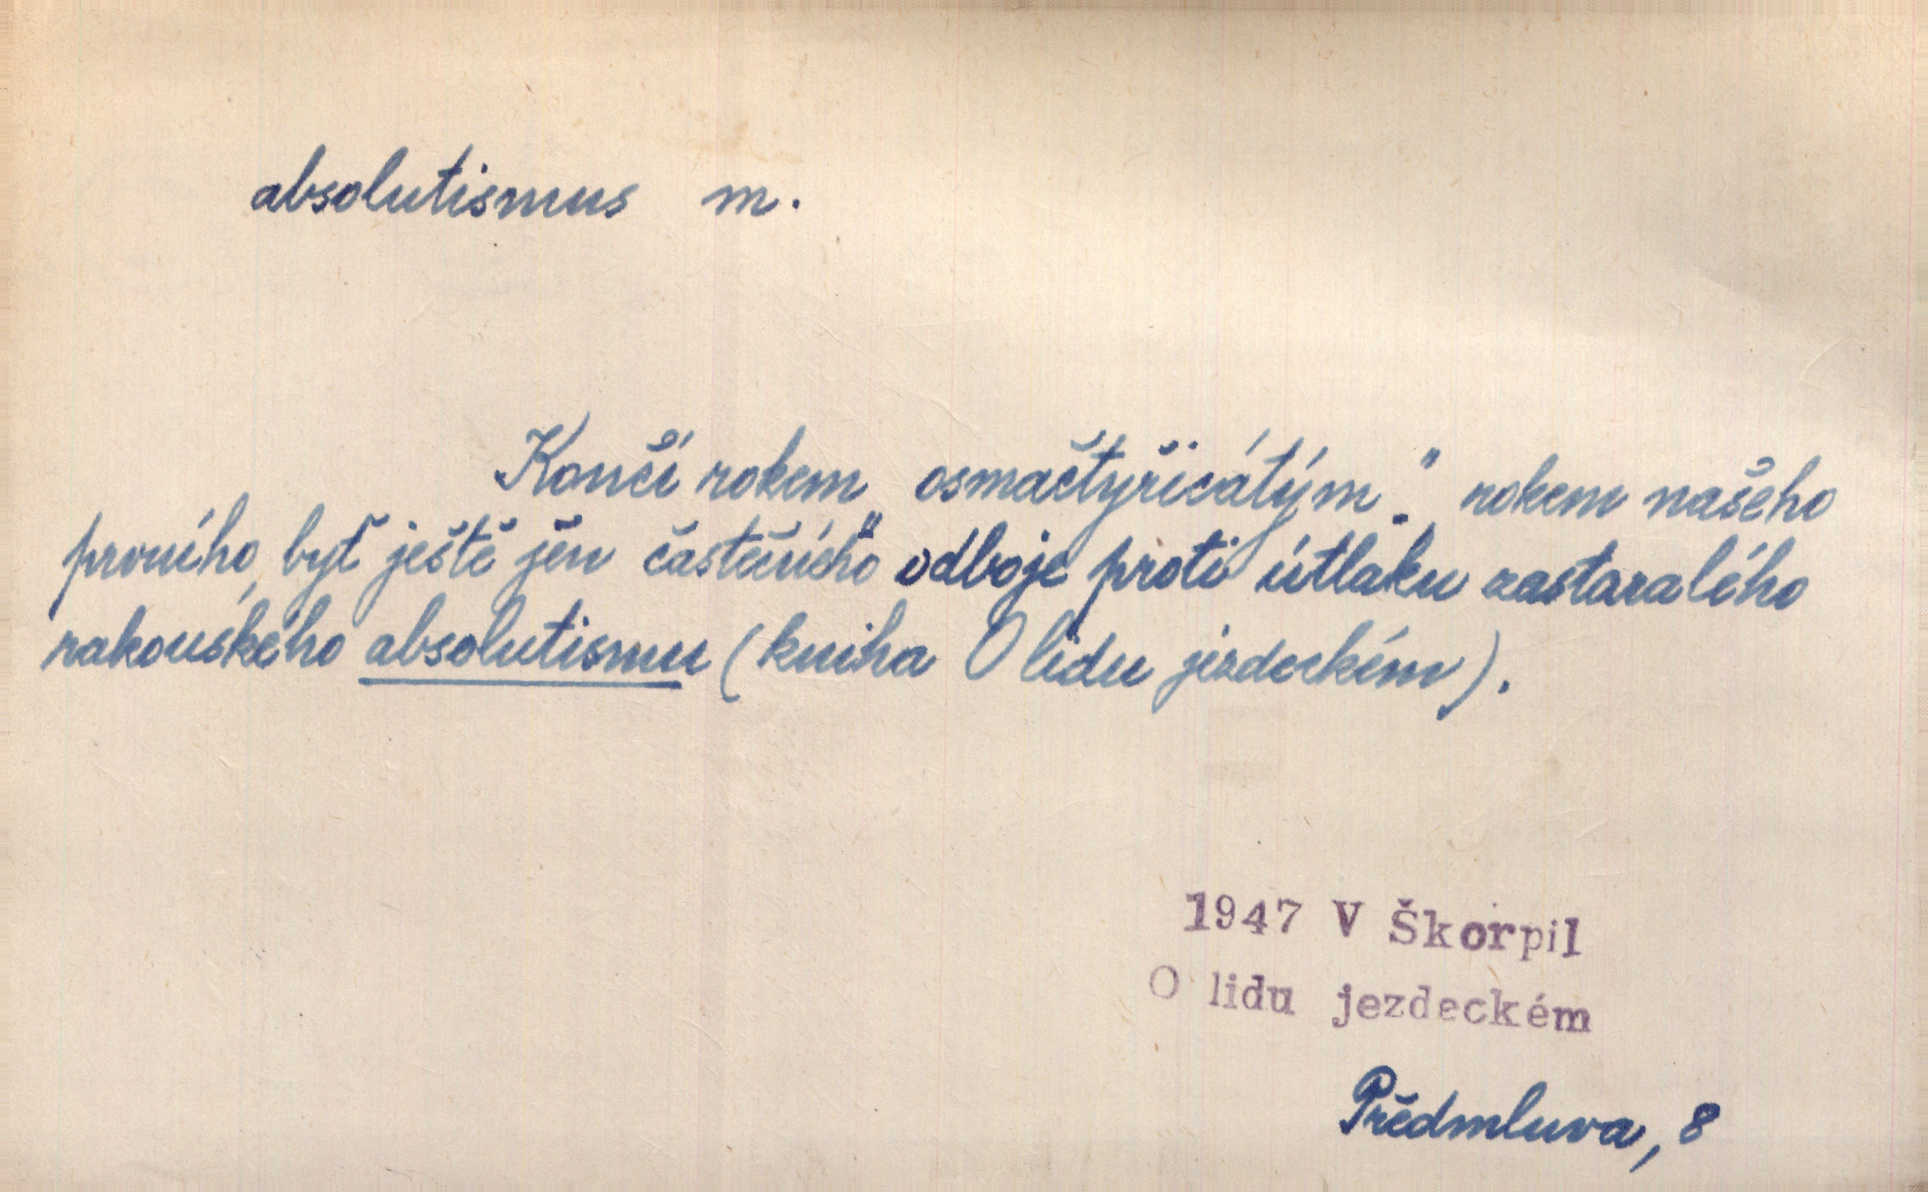 absolutismus m.
Končí rokem „osmačtyřicátým“ rokem našeho
prvního, byť ještě jen „částečného“ odboje proti útlaku zastaralého
rakouského absolutismu (kniha O lidu jezdeckém).
1947 V Škorpil
O lidu jezdeckém
Předmluva, 8